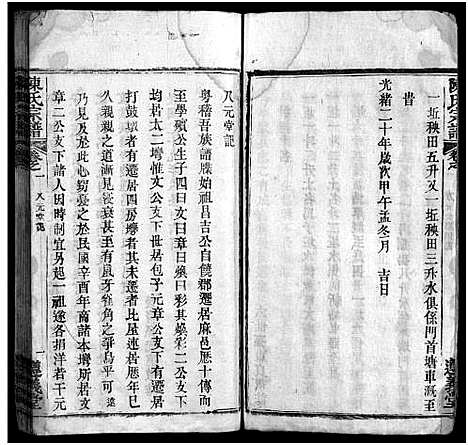 陳氏宗譜
一坵秧田五升又一坵秧田三升水俱係門首塘車溉至
昔
光緒二十年歲次甲午孟冬月 吉日
八元堂記
粵稽吾族譜牒始祖昌吉公自饒郡遷居麻邑歷十傳而
至學殯公生子四曰文曰章曰燦曰彩其燦彩二公支下
均居太二塆惟文公支下世居包子元章公支下有遷居
打鼓塆者有遷居四房塆者其未遷者比屋連居
久親親之誼漸衰而有鼠牙雀角之爭烏乎可
乃見及此心竊憂之於民國辛酉年商諸本塆所居
章二公支下諸人因時制宜另起一祖遂各捐洋若干元
陳氏宗譜
卷之一
八元堂記
一